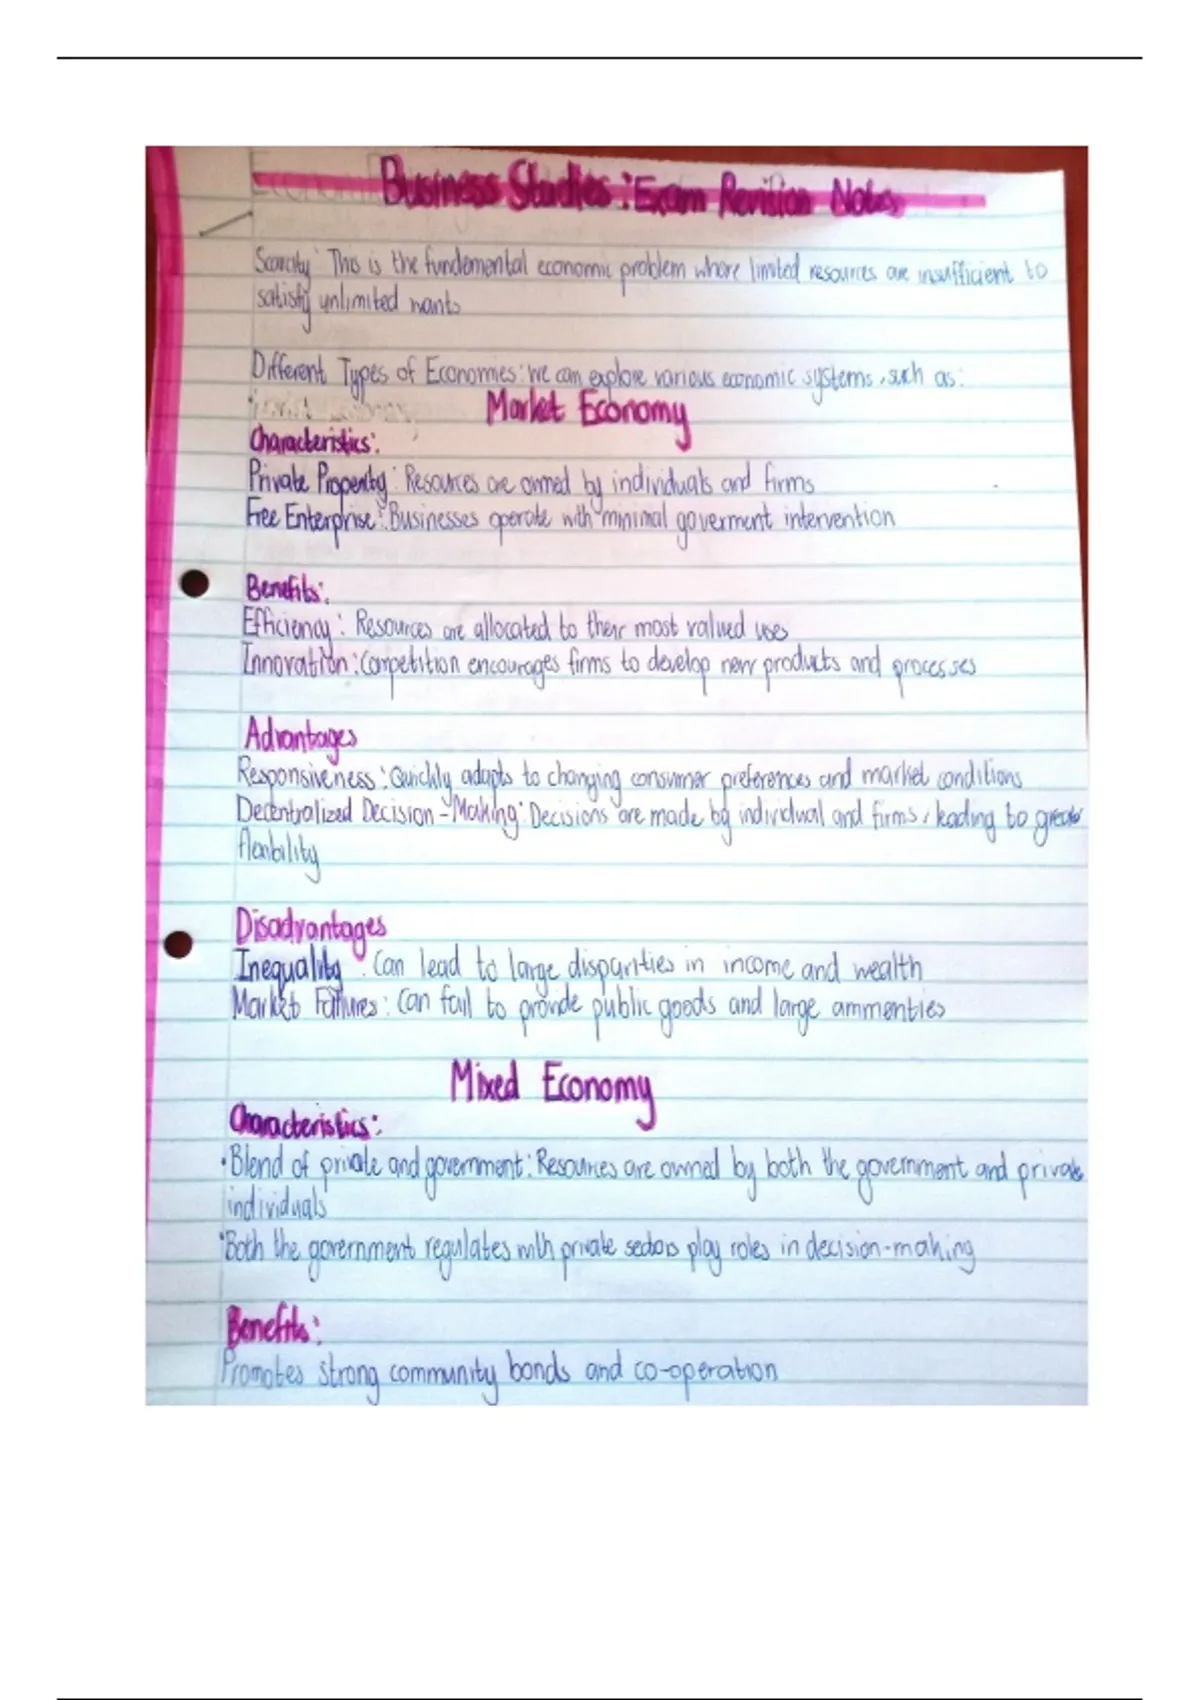 Business Studies: Exam Revision Notes
Scarcity: This is the fundemental economic problem where limited resources are insufficient to
satisfy unlimited wants
Different Types of Economies: we can explore various economic systems, such as:
Market Economy
Characteristics:
Private Property: Resources are owned by individuals and firms
Free Enterprise: Businesses operate with minimal goverment intervention
Benefits:
Efficiency: Resources are allocated to their most valued uses
Innovation: Competition encourages firms to develop new products and processes
Advantages
Responsiveness: Quickly adapts to changing consumer preferences and market conditions
Decentralized Decision-Making: Decisions are made by individual and firms, leading to greater
flexibility
Disadvantages
Inequality: Can lead to large disparities in income and wealth
Market Failures: Can fail to provide public goods and large ammenties
Mixed Economy
Characteristics:
• Blend of private and government: Resources are owned by both the government and private
individuals
• Both the government regulates with private sectors play roles in decision-making
Benefits:
Promotes strong community bonds and co-operation